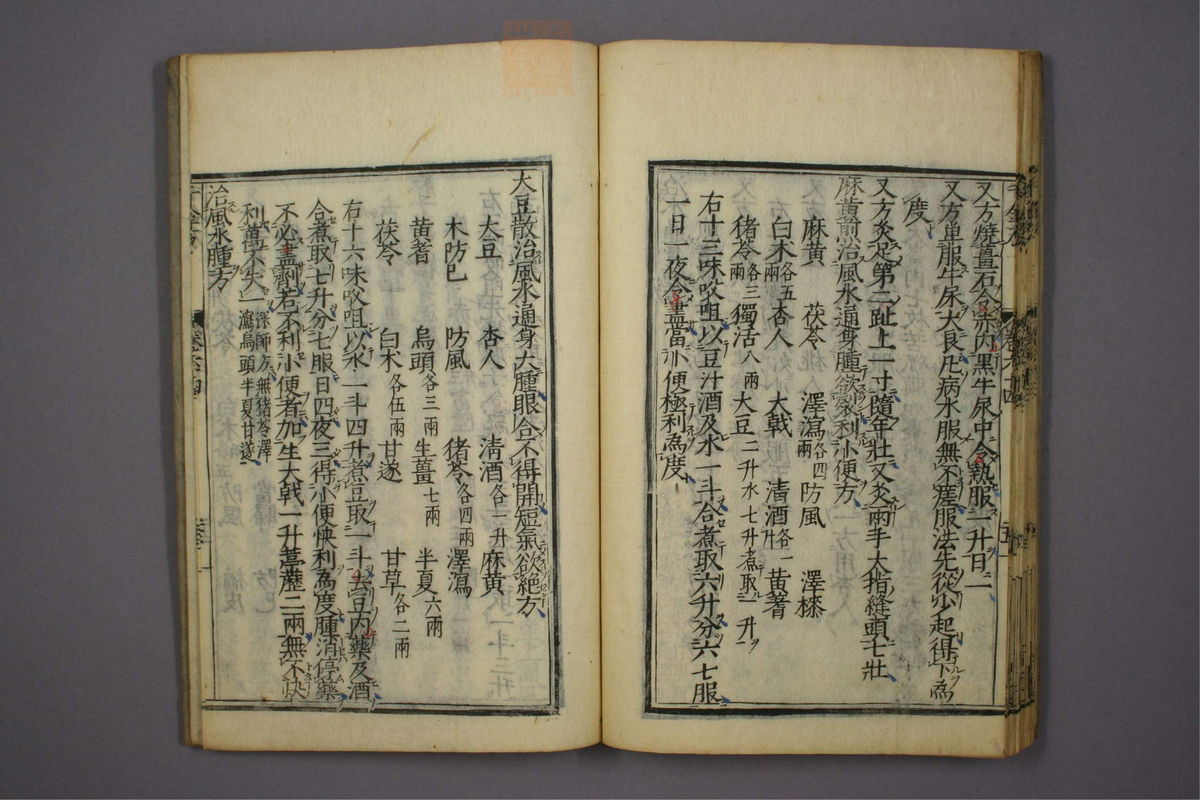 又方燒䃈石令赤内黑牛尿中令熱服一升日一
又方單服牛尿大良凡病水服無不瘥服法先從少起得下為
度
又方灸足第二趾上一寸隨年壯又灸兩手大指縫頭七壯
麻黃煎治風水通身腫欲裂利小便方
麻黃 茯苓 澤瀉各四兩 防風 澤漆
白朮各五兩 杏人 大戟 清酒各一升 黃耆
猪苓各三兩 獨活八兩 大豆二升水七升煮取一升
右十三味㕮咀以豆汁酒及水一斗合煮取六升分六七服
一日一夜令盡當小便極利為度
大豆散治風水通身大腫眼合不得開短氣欲絕方
大豆 杏人 清酒各一升 麻黃
木防已 防風 猪苓各四兩 澤瀉
黃耆 烏頭各三兩 生薑七兩 半夏六兩
茯苓 白朮各伍兩 甘遂 甘草各二兩
右十六味㕮咀以水一斗四升煮豆取一斗去豆内藥及酒
合煮取七升分七服日四夜三得小便快利為度腫消停藥
不必盡劑若不利小便者加生大戟一升葶藶二兩無不快
利萬不失一 深師方無猪苓澤瀉烏頭半夏甘遂
治風水腫方